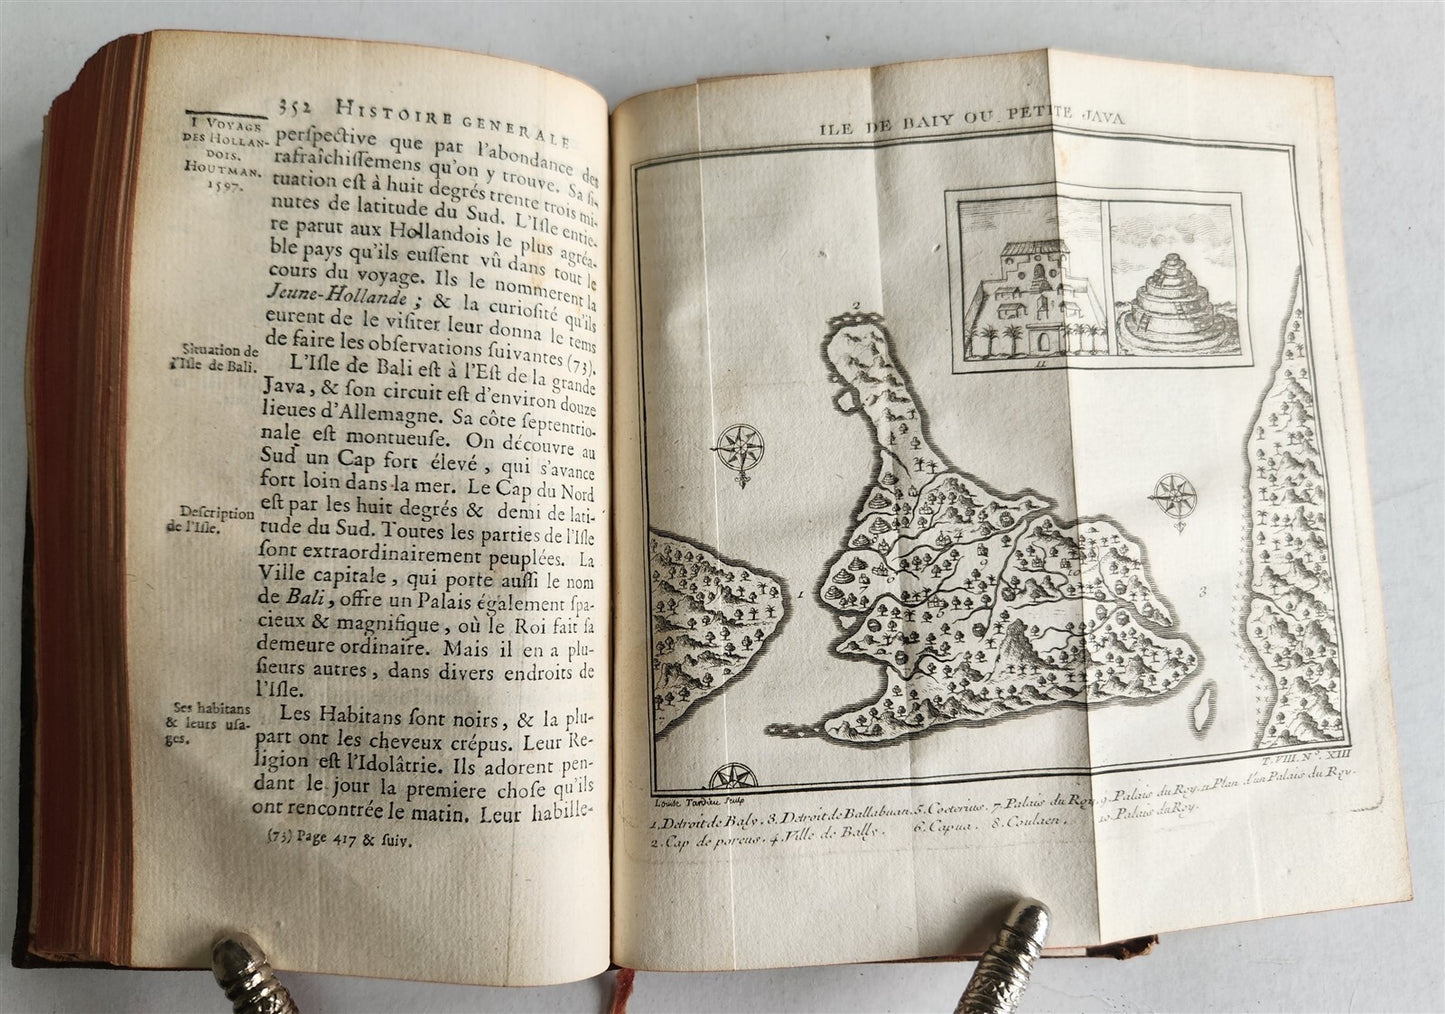 352 HISTOIRE GENERALE
I VOYAGE
DES HOLLAN-
DOIS.
HOUTMAN.
1597.
perſpective que par l'abondance des
rafraîchiſſemens qu'on y trouve. Sa ſi-
tuation eſt à huit degrés trente trois mi-
nutes de latitude du Sud. L'Iſle entie-
re parut aux Hollandois le plus agréa-
ble pays qu'ils euſſent vû dans tout le
cours du voyage. Ils le nommerent la
Jeune-Hollande ; & la curioſité qu'ils
eurent de le viſiter leur donna le tems
de faire les obſervations ſuivantes (73).
Situation de
l'Iſle de Bali.
L'Iſle de Bali eſt à l'Eſt de la grande
Java, & ſon circuit eſt d'environ douze
lieues d'Allemagne. Sa côte ſeptentrio-
nale eſt montueuſe. On découvre au
Sud un Cap fort élevé, qui s'avance
fort loin dans la mer. Le Cap du Nord
eſt par les huit degrés & demi de lati-
tude du Sud. Toutes les parties de l'Iſle
ſont extraordinairement peuplées. La
Ville capitale, qui porte auſſi le nom
de Bali, offre un Palais également ſpa-
cieux & magnifique, où le Roi fait ſa
demeure ordinaire. Mais il en a plu-
ſieurs autres, dans divers endroits de
l'Iſle.
Deſcription
de l'Iſle.
Ses habitans
& leurs uſa-
ges.
Les Habitans ſont noirs, & la plu-
part ont les cheveux crépus. Leur Re-
ligion eſt l'Idolâtrie. Ils adorent pen-
dant le jour la premiere choſe qu'ils
ont rencontrée le matin. Leur habille-
(73) Page 417 & ſuiv.
ILE DE BAIY OU PETITE JAVA
2
11
1
4
9
7
3
T. VIII. N°. XIII
Louise Tardieu Sculp
1. Detroit de Baly. 3. Detroit de Ballabuan. 5. Cocterius. 7. Palais du Roy. 9. Palais du Roy. 11. Plan d'un Palais du Roy.
2. Cap de porcus. 4. Ville de Bally. 6. Capua. 8. Coulaen. 10. Palais du Roy.